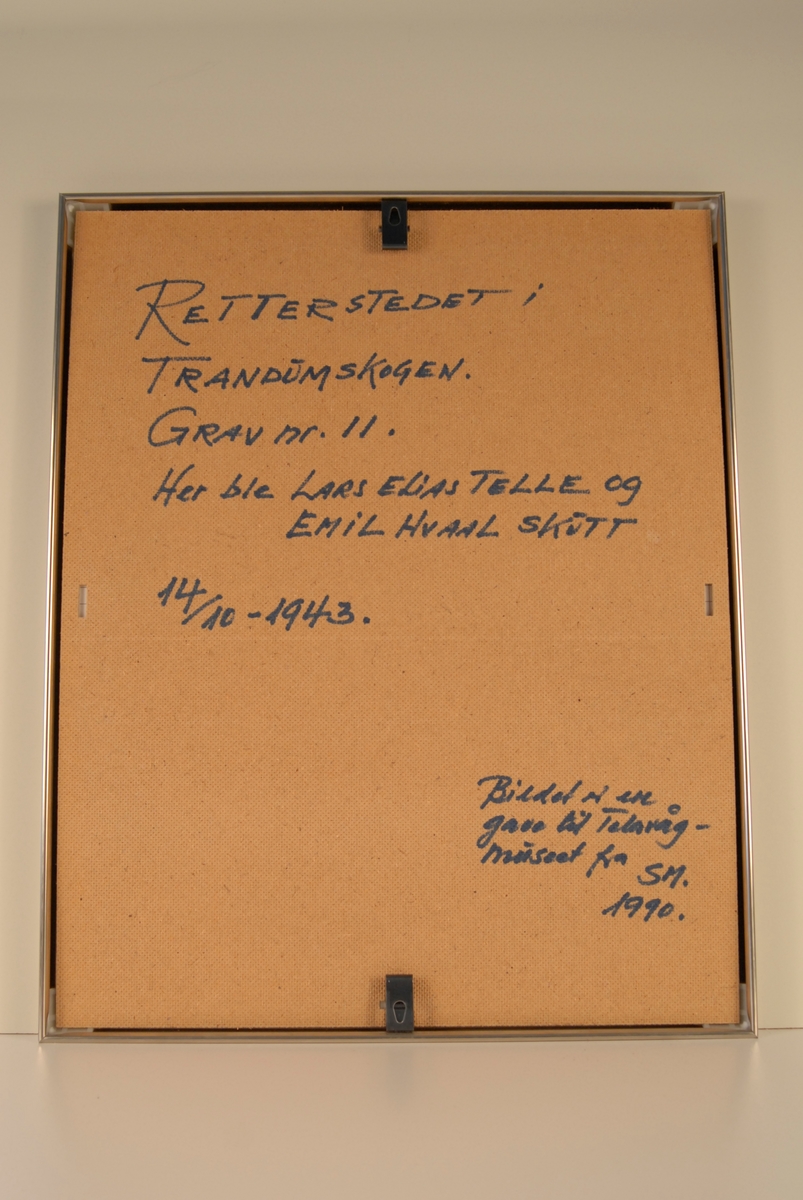 RETTERSTEDET i
TRANDŪMSKOGEN.
GRAV nr. 11.
Her ble LARS ELIAS TELLE og
EMIL HVAAL SKŪTT
14/10 - 1943.
Bildet er en
gave til Telavåg-
mūseet fra
SM.
1990.